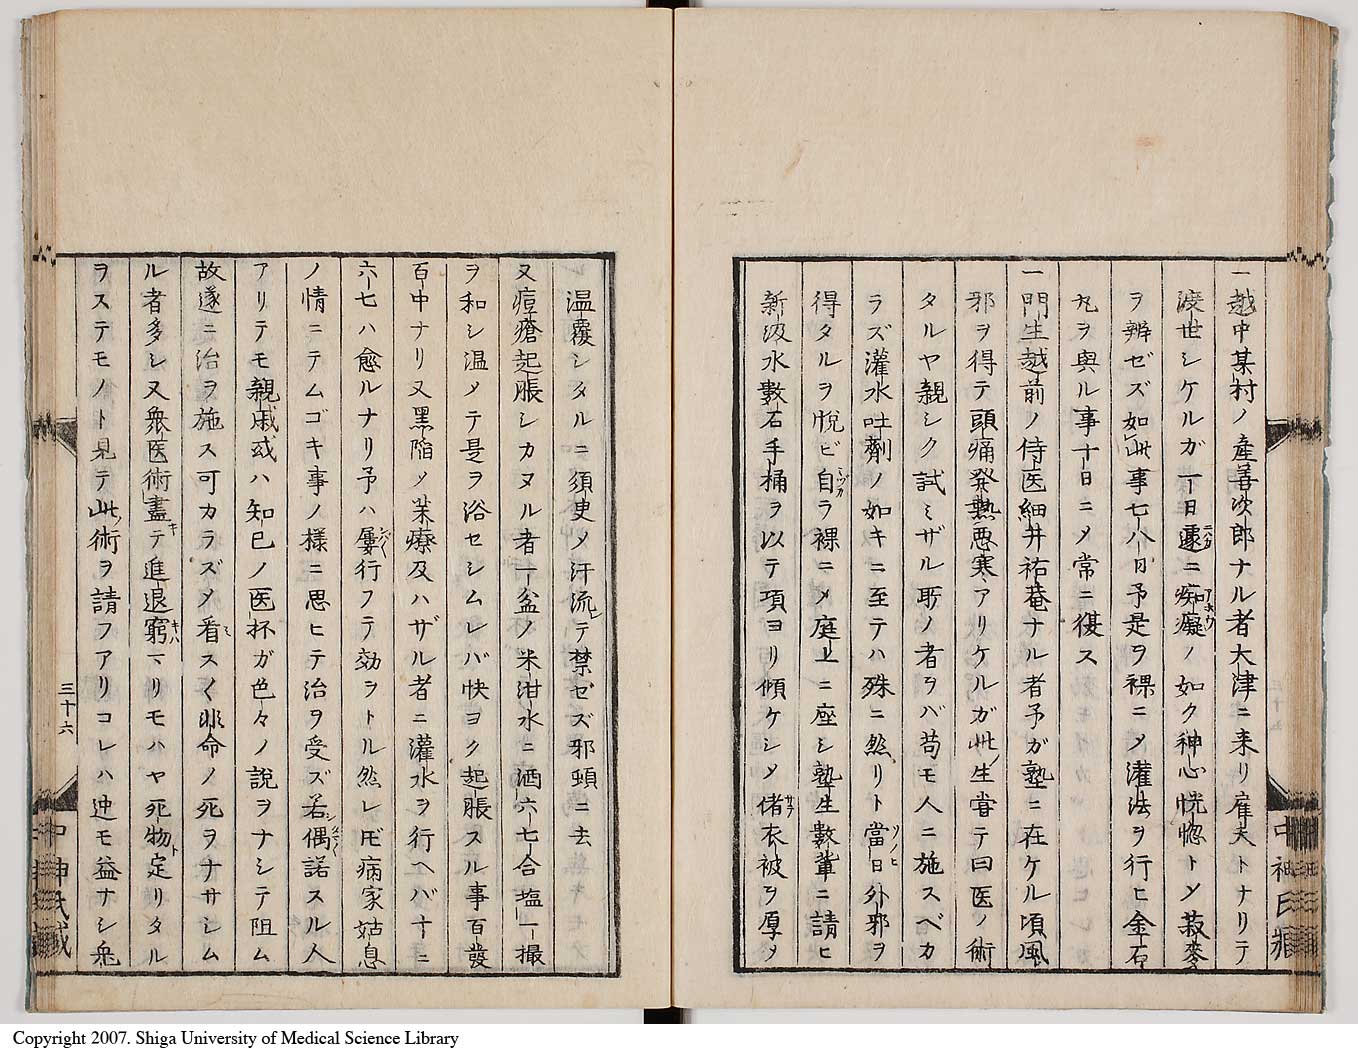 一越中某村ノ産善次郎ナル者大津ニ来リ雇夫トナリテ
渡世シケルガ一日遽ニ痴癡ノ如ク神心恍惚トメ菽麥
ヲ辨ゼズ如此事七八日予是ヲ裸ニメ灌法ヲ行ヒ金石
丸ヲ與ル事十日ニメ常ニ復ス
一門生越前ノ侍医細井祐菴ナル者予ガ塾ニ在ケル頃風
邪ヲ得テ頭痛発熱悪寒アリケルガ此生嘗テ曰医ノ術
タルヤ親シク試ミザル所ノ者ヲバ苟モ人ニ施スベカ
ラズ灌水吐劑ノ如キニ至テハ殊ニ然リト當日外邪ヲ
得タルヲ悦ビ自ラ裸ニメ庭上ニ座シ塾生數輩ニ請ヒ
新汲水數石手桶ヲ以テ項ヨリ傾ケシメ偖衣被ヲ厚メ
中神氏藏
温覆シタルニ須臾メ汗流レテ禁ゼズ邪頓ニ去
又痘瘡起脹シカヌル者一盆ノ米泔水ニ酒六七合塩一撮
ヲ和シ温メテ是ヲ浴セシムレバ快ヨク起脹スル事百發
百中ナリ又黒陥メ薬療及ハザル者ニ灌水ヲ行ヘバ十ニ
六七ハ愈ルナリ予ハ屢行フテ効ヲトル然レ𪜈病家姑息
ノ情ニテムゴキ事ノ様ニ思ヒテ治ヲ受ズ若偶諾スル人
アリテモ親戚或ハ知己ノ医杯ガ色々ノ說ヲナシテ阻ム
故遂ニ治ヲ施ス可カラズメ看スく非命ノ死ヲナサシム
ル者多シ又衆医術盡テ進退窮マリモハヤ死物ト定リタル
ヲステモノト見テ此術ヲ請フアリコレハ迚モ益ナシ衆
三十六
中神氏藏